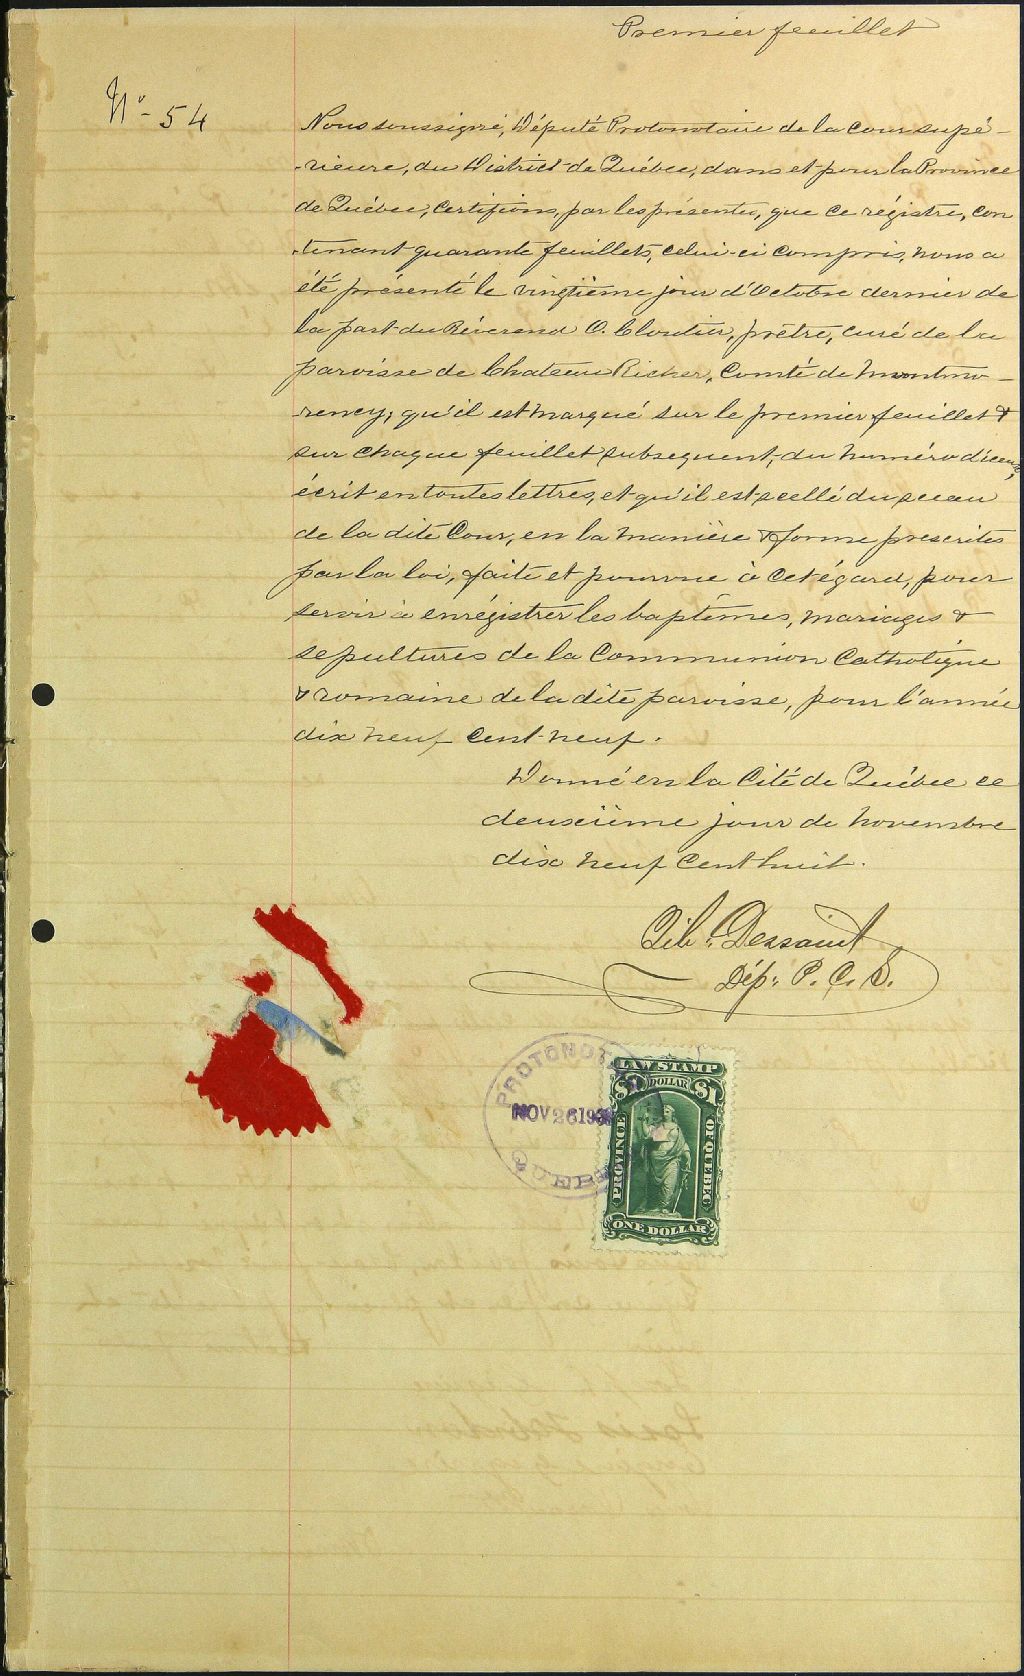 Premier feuillet
No - 54
Nous soussigné, Député Protonotaire de la Cour supé-
-rieure, du District de Québec, dans et pour la Province
de Québec, Certifions, par les présentes, que ce régistre, con
-tenant quarante feuillets, celui-ci compris, nous a
été présenté le vingtième jour d'Octobre dernier de
la part du Révérend O. Cloutier, prêtre, curé de la
paroisse de Chateau Richer, Comté de Montmo-
-rency; qu'il est marqué sur le premier feuillet &
sur chaque feuillet subsequent, du numéro d'iceux,
écrit en toutes lettres, et qu'il est scellé du sceau
de la dite Cour, en la manière & forme prescrites
par la loi, faite et pourvue à cet égard, pour
servir à enrégistrer les baptêmes, mariages &
sepultures de la Communion Catholique
& romaine de la dite paroisse, pour l'année
dix neuf cent neuf.
Donné en la Cité de Québec ce
deuxième jour de Novembre
dix neuf cent huit.
Dessaint
Dép: P. C. S.
LAW STAMP
$1 DOLLAR $1
PROVINCE OF QUEBEC
ONE DOLLAR
NOV 26